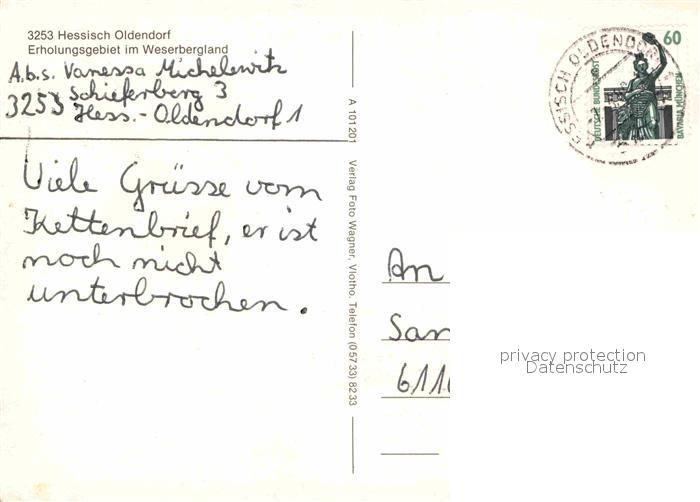 3253 Hessisch Oldendorf
Erholungsgebiet im Weserbergland
A.b.s. Vanessa Michelewitz
Schieferberg 3
3253 Hess.-Oldendorf 1
Viele Grüsse vom
Kettenbrief, er ist
noch nicht
unterbrochen.
A 101 201 Verlag Foto Wagner, Vlotho. Telefon (0 57 33) 82 33
HESSISCH OLDENDORF 1
60
DEUTSCHE BUNDESPOST
BAVARIA MÜNCHEN
An
San
6111
privacy protection
Datenschutz